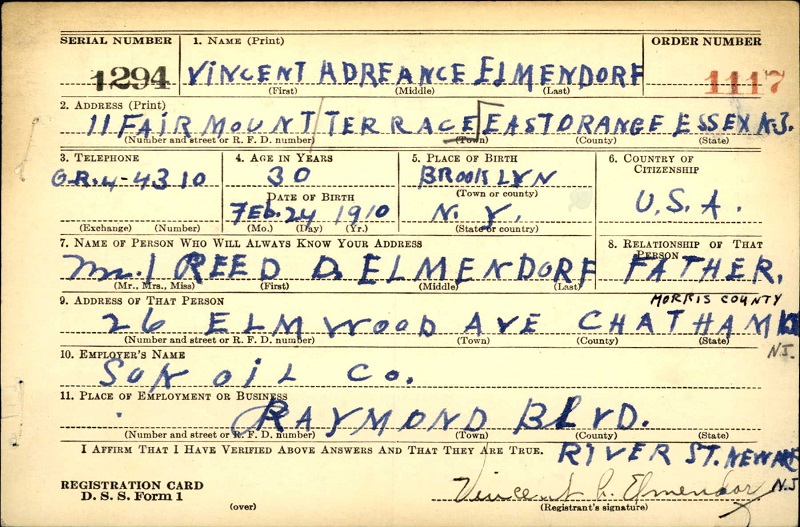 SERIAL NUMBER 1. NAME (Print) ORDER NUMBER
1294 VINCENT ADREANCE ELMENDORF 1117
(First) (Middle) (Last)
2. ADDRESS (Print)
11 FAIRMOUNT TERRACE EAST ORANGE ESSEX N.J.
(Number and street or R. F. D. number) (Town) (County) (State)
3. TELEPHONE 4. AGE IN YEARS 5. PLACE OF BIRTH 6. COUNTRY OF CITIZENSHIP
O.R.4-4310 30 BROOKLYN
DATE OF BIRTH (Town or county) U.S.A.
FEB. 24 1910 N.Y.
(Exchange) (Number) (Mo.) (Day) (Yr.) (State or country)
7. NAME OF PERSON WHO WILL ALWAYS KNOW YOUR ADDRESS 8. RELATIONSHIP OF THAT PERSON
Mr. REED D. ELMENDORF FATHER.
(Mr., Mrs., Miss) (First) (Middle) (Last)
9. ADDRESS OF THAT PERSON MORRIS COUNTY
26 ELMWOOD AVE CHATHAM
(Number and street or R. F. D. number) (Town) (County) (State) N.J.
10. EMPLOYER'S NAME
SUN OIL CO.
11. PLACE OF EMPLOYMENT OR BUSINESS
RAYMOND BLVD.
(Number and street or R. F. D. number) (Town) (County) (State)
I AFFIRM THAT I HAVE VERIFIED ABOVE ANSWERS AND THAT THEY ARE TRUE. RIVER ST. NEWARK
N.J
REGISTRATION CARD
D. S. S. Form 1 Vincent A. Elmendorf
(over) (Registrant's signature)